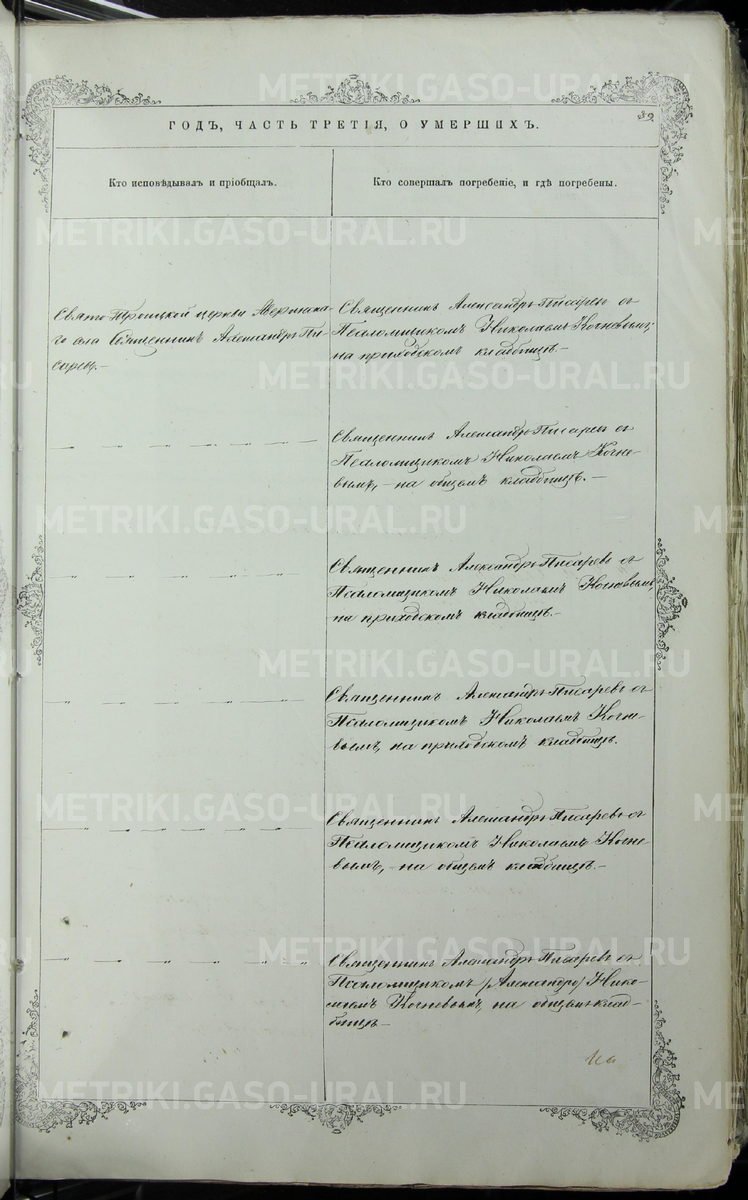 ГОДЪ, ЧАСТЬ ТРЕТІЯ, О УМЕРШИХЪ.
Кто исповѣдывалъ и пріобщалъ.
Кто совершалъ погребеніе, и гдѣ погребены.
Свято Троицкой церкви
Священникъ Александръ Пи-
саревъ.–
Священникъ Александръ Писаревъ съ
Псаломщикомъ Николаемъ Кочневымъ,
на приходскомъ кладбищѣ.–
Священникъ Александръ Писаревъ съ
Псаломщикомъ Николаемъ Кочне-
вымъ, – на общемъ кладбищѣ. –
Священникъ Александръ Писаревъ съ
Псаломщикомъ Николаемъ Кочневымъ,
на приходскомъ кладбищѣ.–
Священникъ Александръ Писаревъ съ
Псаломщикомъ Николаемъ Кочне-
вымъ, на приходскомъ кладбищѣ.
Священникъ Александръ Писаревъ съ
Псаломщикомъ Николаемъ Кочне-
вымъ, – на общемъ кладбищѣ. –
Священникъ Александръ Писаревъ съ
Псаломщикомъ /Александро/ Нико-
лаемъ Кочневымъ, на общемъ клад-
бищѣ –
METRIKI.GASO-URAL.RU